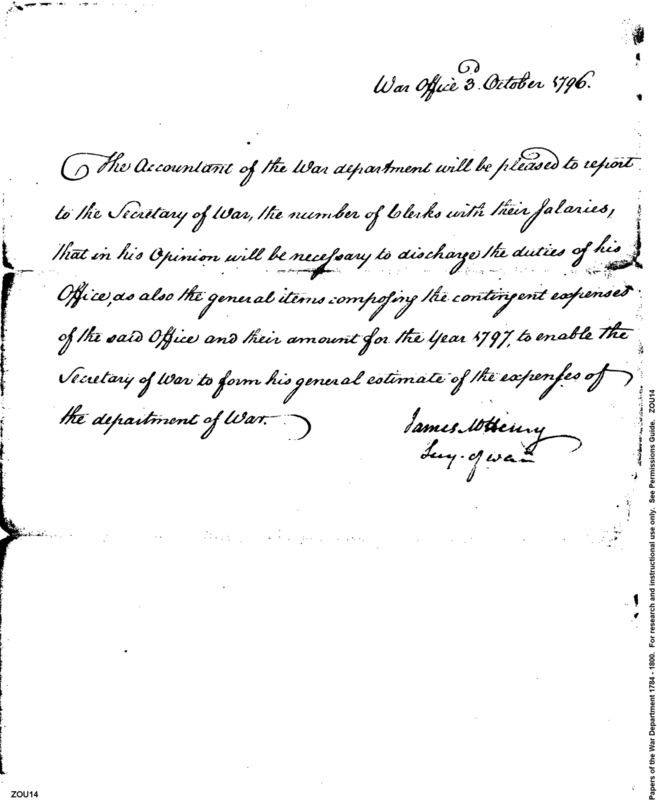 War Office 3d. October 1796.
The Accountant of the War department will be pleased to report
to the Secretary of War, the number of Clerks with their Salaries,
that in his Opinion will be necessary to discharge the duties of his
Office, as also the general items composing the contingent expenses
of the said Office and their amount for the Year 1797, to enable the
Secretary of War to form his general estimate of the expenses of
the department of War.
James McHenry
Secy. of war
Papers of the War Department 1784 - 1800. For research and instructional use only. See Permissions Guide. ZOU14
ZOU14